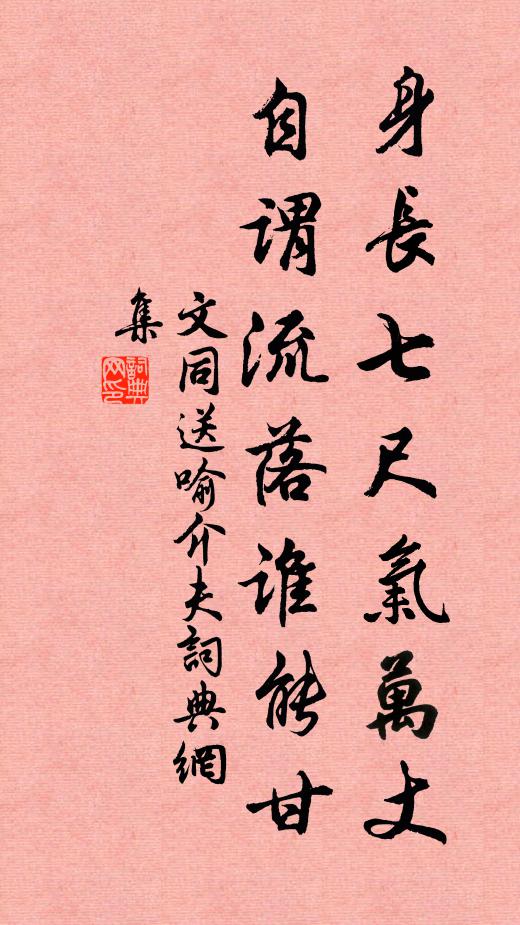 身長七尺氣萬丈
自謂流落誰能甘
文同送喻介夫詞典網
集
詞典
网印